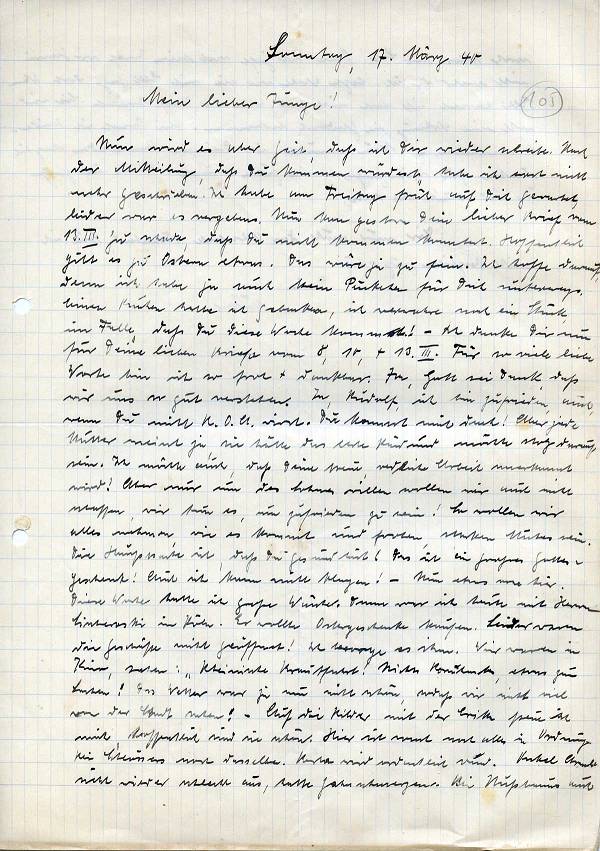 Sonntag, 17. März 40
101
Mein lieber Junge!
Nun wird es aber Zeit, daß ich Dir wieder schreibe. Nach
der Mitteilung, daß Du kommen würdest, habe ich erst nicht
mehr geschrieben. Ich habe am Freitag früh auf Dich gewartet,
leider war es vergebens. Nun kam gestern Dein lieber Brief vom
13.III. zu, daß Du nicht kommen konntest. Hoffentlich
gibt es zu Ostern etwas. Das wäre ja zu fein. Ich hoffe darauf,
denn ich habe ja auch kein Päckchen für Dich unterwegs.
Einen Kuchen hatte ich gebacken, ich verwahre noch ein Stück,
im Falle, daß Du diese Woche kommst! – Ich danke Dir nun
für Deine lieben Briefe vom 8, 10, + 13.III. Für so viele liebe
Worte bin ich so froh + dankbar. Ja, Gott sei Dank, daß
wir uns so gut verstehen. Ja, Rudolf, ich bin zufrieden, auch,
wenn Du nicht K.O.A. wirst. Du kommst auch durch! Aber jede
Mutter meint ja, sie hätte das beste Kind und möchte stolz darauf
sein. Ich möchte auch, daß Deine treue, redliche Arbeit anerkannt
wird! Aber nur um des Lohnes willen wollen wir auch nicht
schaffen, wir tun es, um zufrieden zu sein! So wollen wir
alles nehmen, wie es kommt und frohen, starken Mutes sein.
Die Hauptsache ist, daß Du gesund bist! Das ist ein großes Gottes-
geschenk! Auch ich kann nicht klagen! – Nun etwas von hier.
Diese Woche hatte ich große Wäsche. Dann war ich heute mit Herrn
in Köln. Er wollte Ostergeschenke kaufen. Leider waren
die Geschäfte nicht geöffnet! Ich besorge es ihm. Wir waren im
Kino, sahen: „Kleinste Brautfahrt“. etwas zum
Lachen! Das Wetter war ja nun nicht schön, so daß wir nicht viel
von der Stadt sahen! – Auf die Bilder mit der freue ich
mich, hoffentlich sind sie schön. Hier ist sonst noch alles in Ordnung.
Bei noch dasselbe. wird ordentlich rund. Onkel
sieht wieder schlecht aus, hatte Zahn. Bei Nußbaums auch